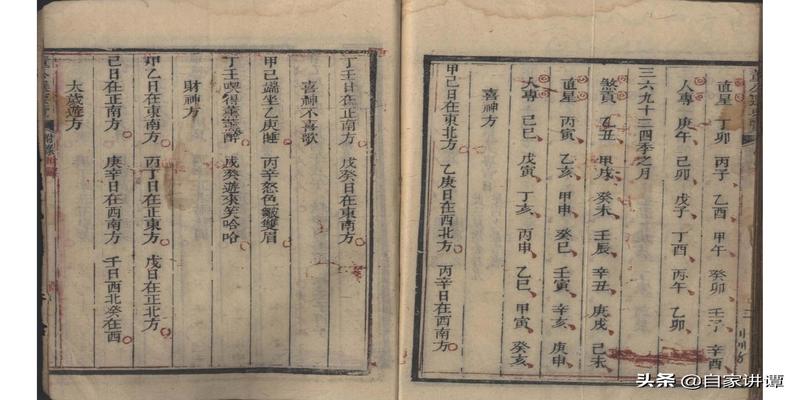 直星 丁卯 丙子 乙酉 甲午 癸卯 壬子 辛酉
人專 庚午 己卯 戊子 丁酉 丙午 乙卯
三六九十二四季之月
煞貢 乙丑 甲戌 癸未 壬辰 辛丑 庚戌 己未
直星 丙寅 乙亥 甲申 癸巳 壬寅 辛亥 庚申
人專 己巳 戊寅 丁亥 丙申 乙巳 甲寅 癸亥
喜神方
甲己日在東北方 乙庚日在西北方 丙辛日在西南方
丁壬日在正南方 戊癸日在東南方
喜神不喜歌
甲己端坐乙庚睡 丙辛怒色皺雙眉
丁壬喫得薰薰醉 戊癸遊來笑哈哈
財神方
甲乙日在東南方 丙丁日在正東方 戊日在正北方
己日在正南方 庚辛日在西南方 壬日西北癸在西
太歲遊方
头条 @自家讲谭